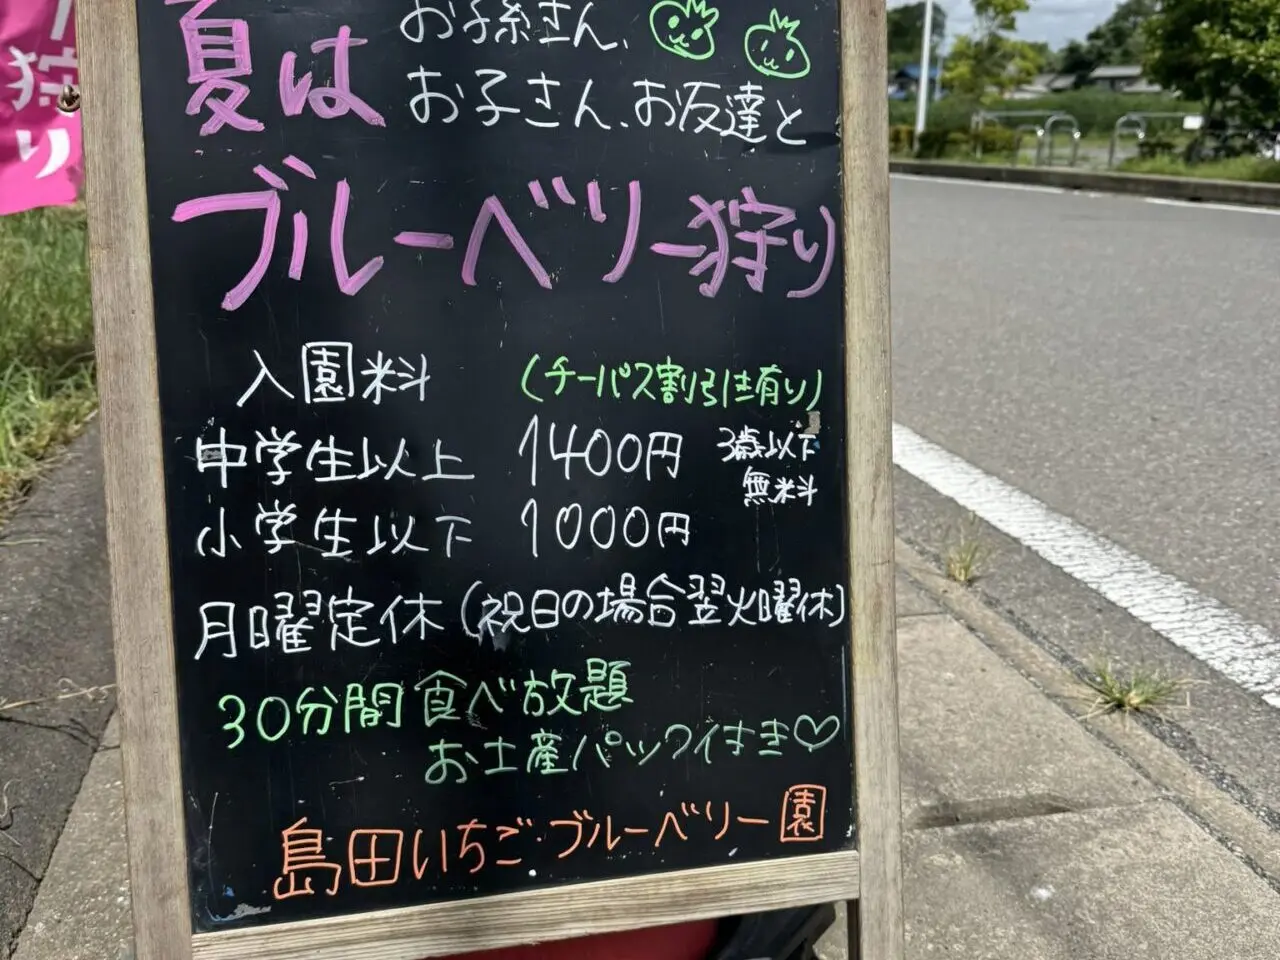 狩り
夏は
お孫さん、
お子さん、お友達と
ブルーベリー狩り
入園料 (チーパス割引は有り)
中学生以上 1400円 3歳以下
無料
小学生以下 1000円
月曜定休(祝日の場合翌火曜休)
30分間食べ放題
お土産パック付き♡
島田いちご・ブルーベリー園